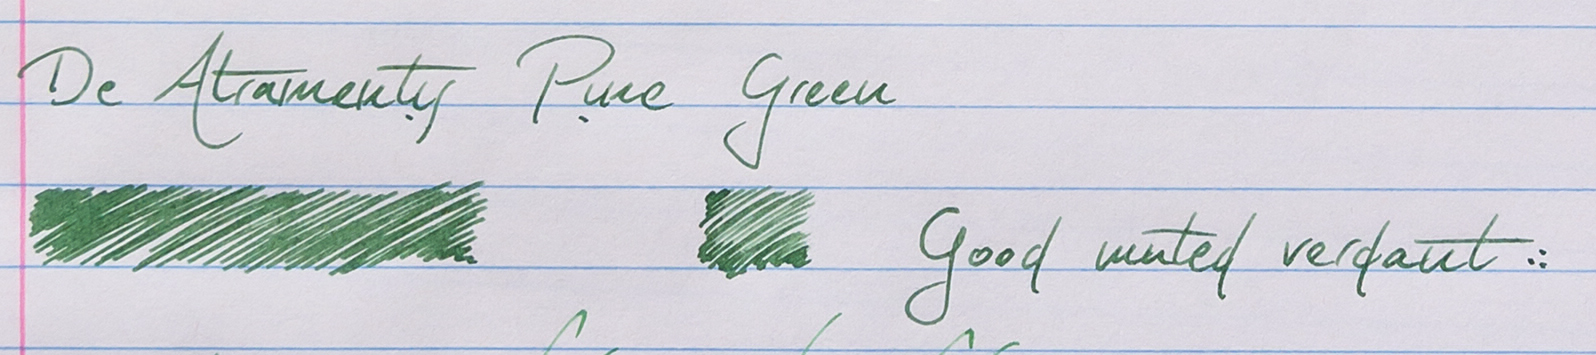 De Atramentis Pure Green
Good muted verdant